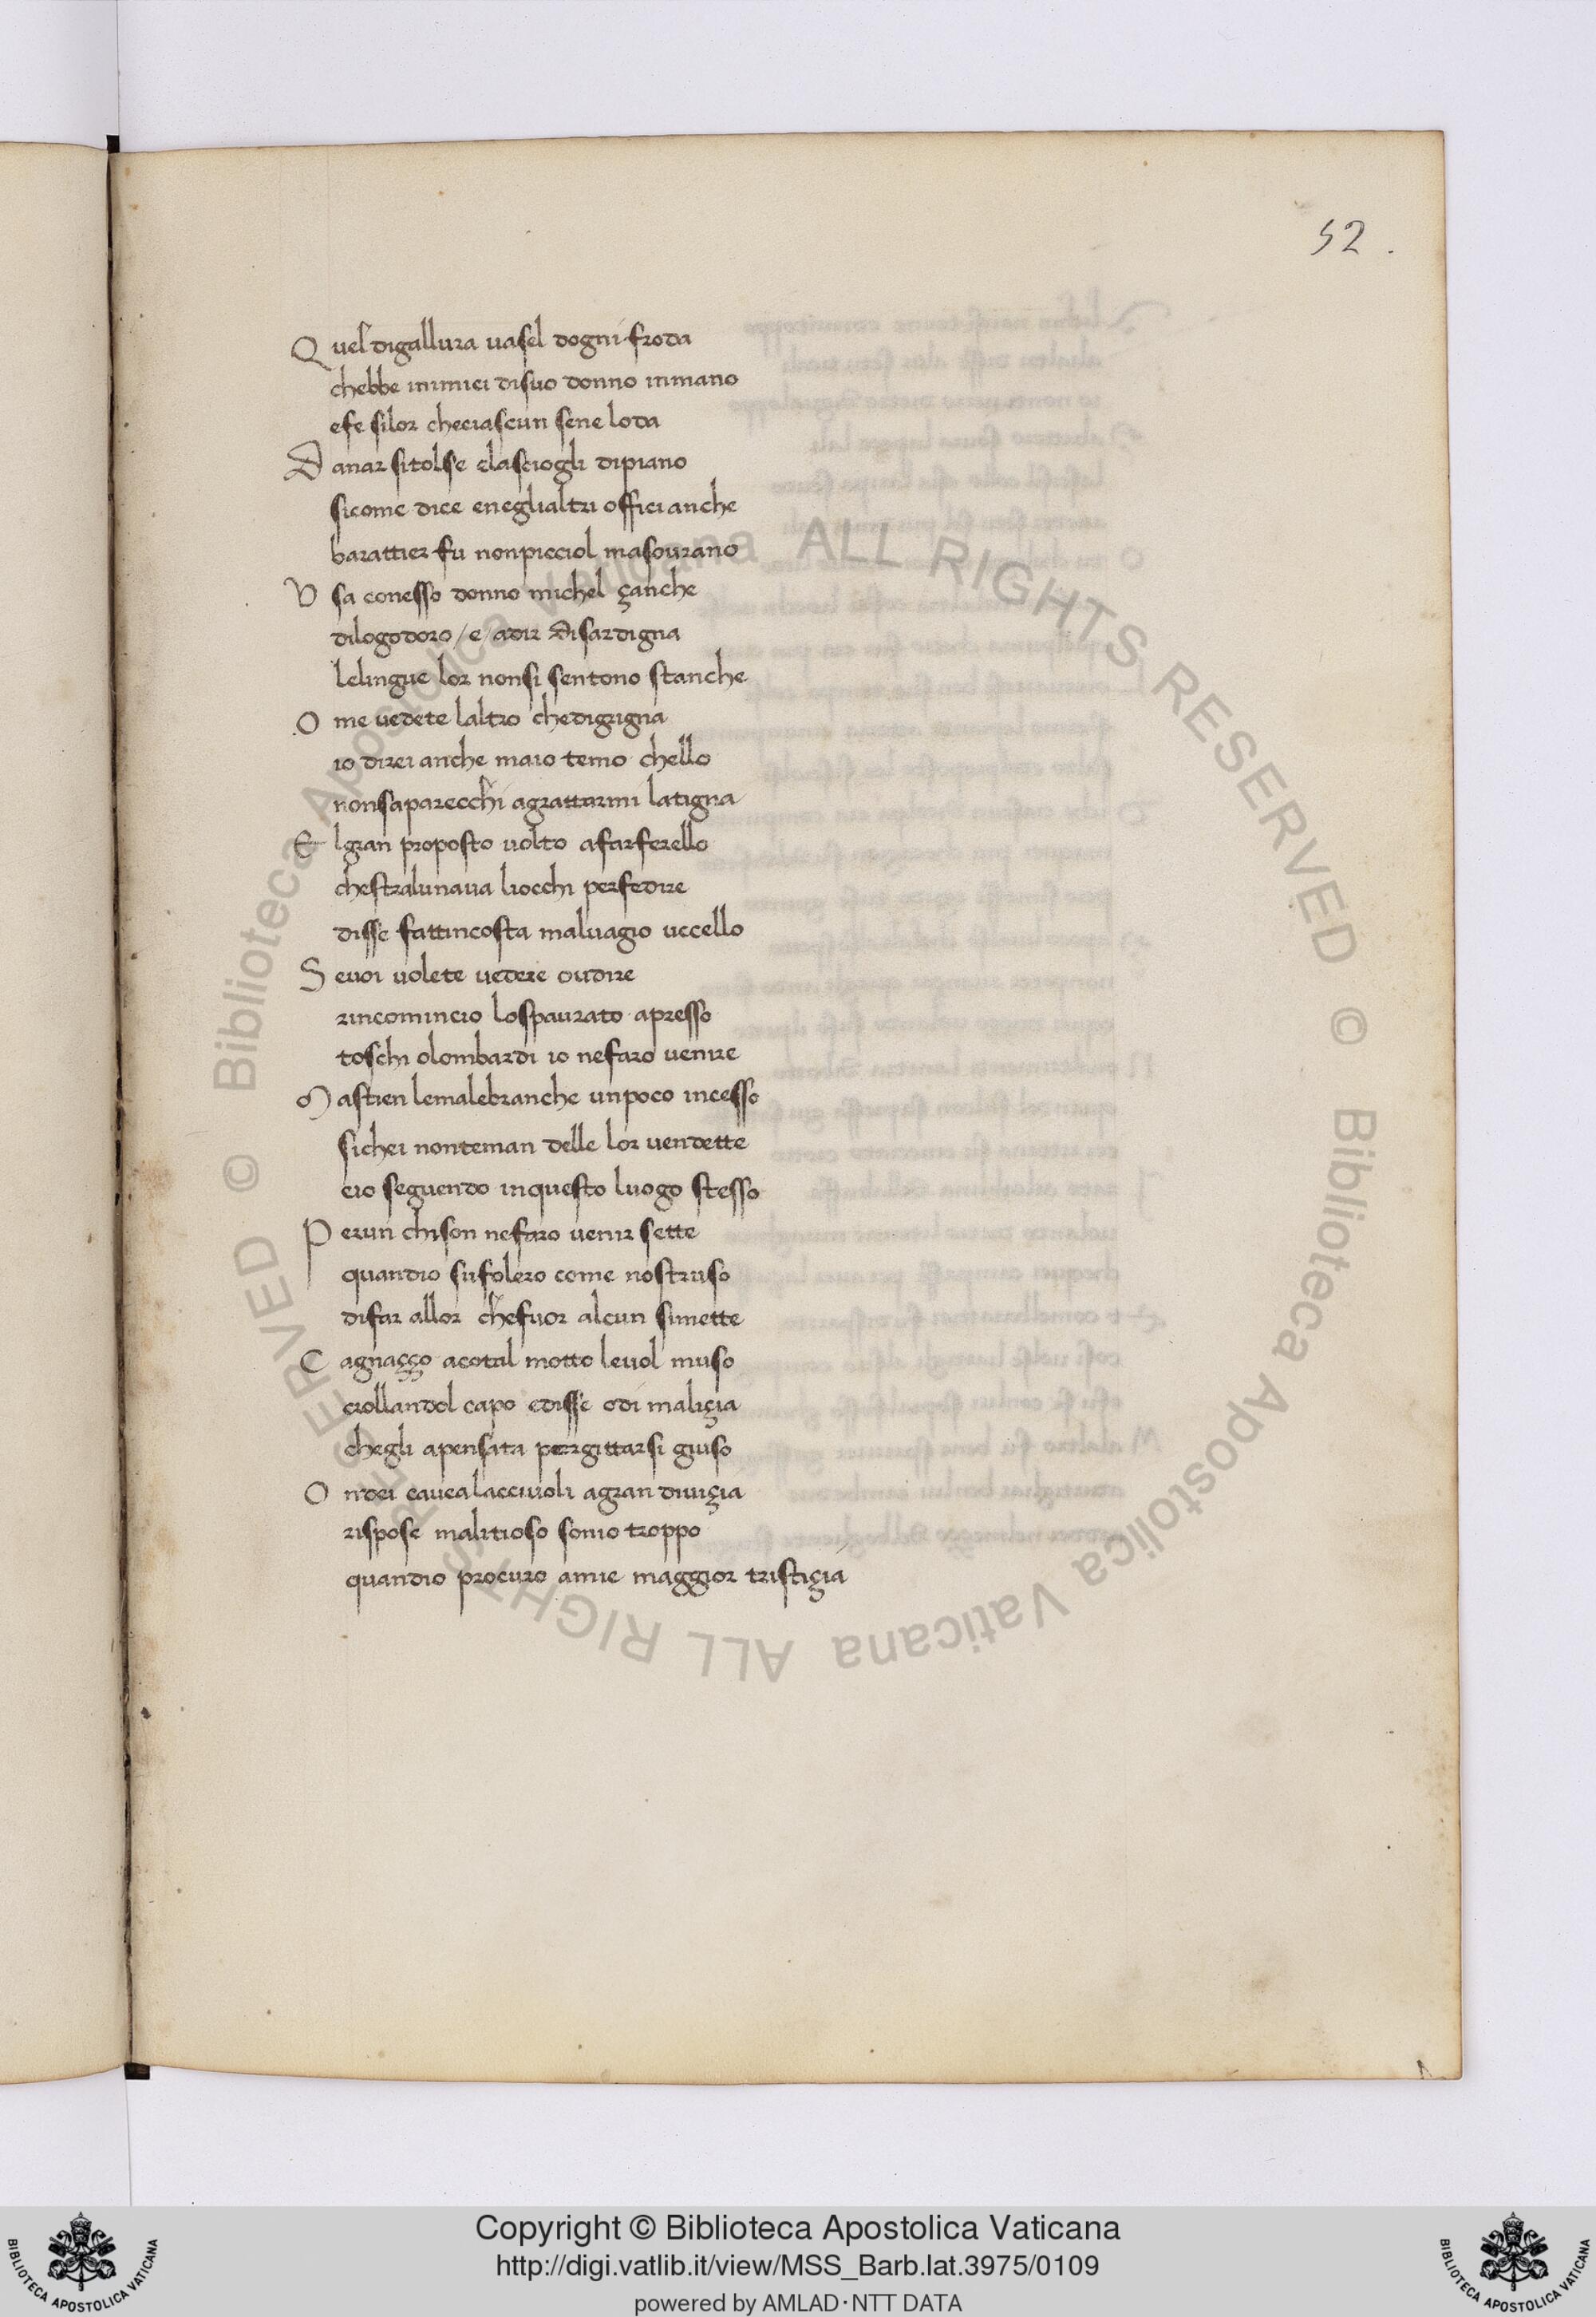 52.
Quel digallura vasel dogni froda
chebbe inimici disuo donno inmano
efe silor checiascun sene loda
Danar sitolse elasciogli dipiano
sicome dice eneglialtri officianche
barattier fu nonpicciol masovrano
Vsa conesso donno michel çanche
dilogodoro /e/ adir disardigna
lelingue lor nonsi sentono stanche
Ome vedete laltro chedigrigna
io direi anche maio temo chello
nonsaparecchi agrattarmi latigna
Elgran proposto volto afarferello
chestralunava liocchi perfedire
disse fattincosta malvagio uccello
Sevoi volete vedere oudire
rincomincio lospaurato apresso
toschi olombardi io nefaro venire
Mastien lemalebranche unpoco incesso
sichei nonteman delle lor vendette
eio seguendo inquesto luogo stesso
Perun chison nefaro venir sette
quandio sufolero come nostruso
difar allor chefuor alcun simette
Cagnaçço acotal motto levol muso
crollandol capo edisse odi maliçia
chegli apensata pergittarsi giuso
Ondei cavealacciuoli agran diviçia
rispose malitioso sonio troppo
quandio procuro amie maggior tristiçia
© Biblioteca Apostolica Vaticana ALL RIGHTS RESERVED
© Biblioteca Apostolica Vaticana ALL RIGHTS RESERVED
Copyright © Biblioteca Apostolica Vaticana
http://digi.vatlib.it/view/MSS_Barb.lat.3975/0109
powered by AMLAD·NTT DATA
BIBLIOTECA APOSTOLICA VATICANA
BIBLIOTECA APOSTOLICA VATICANA